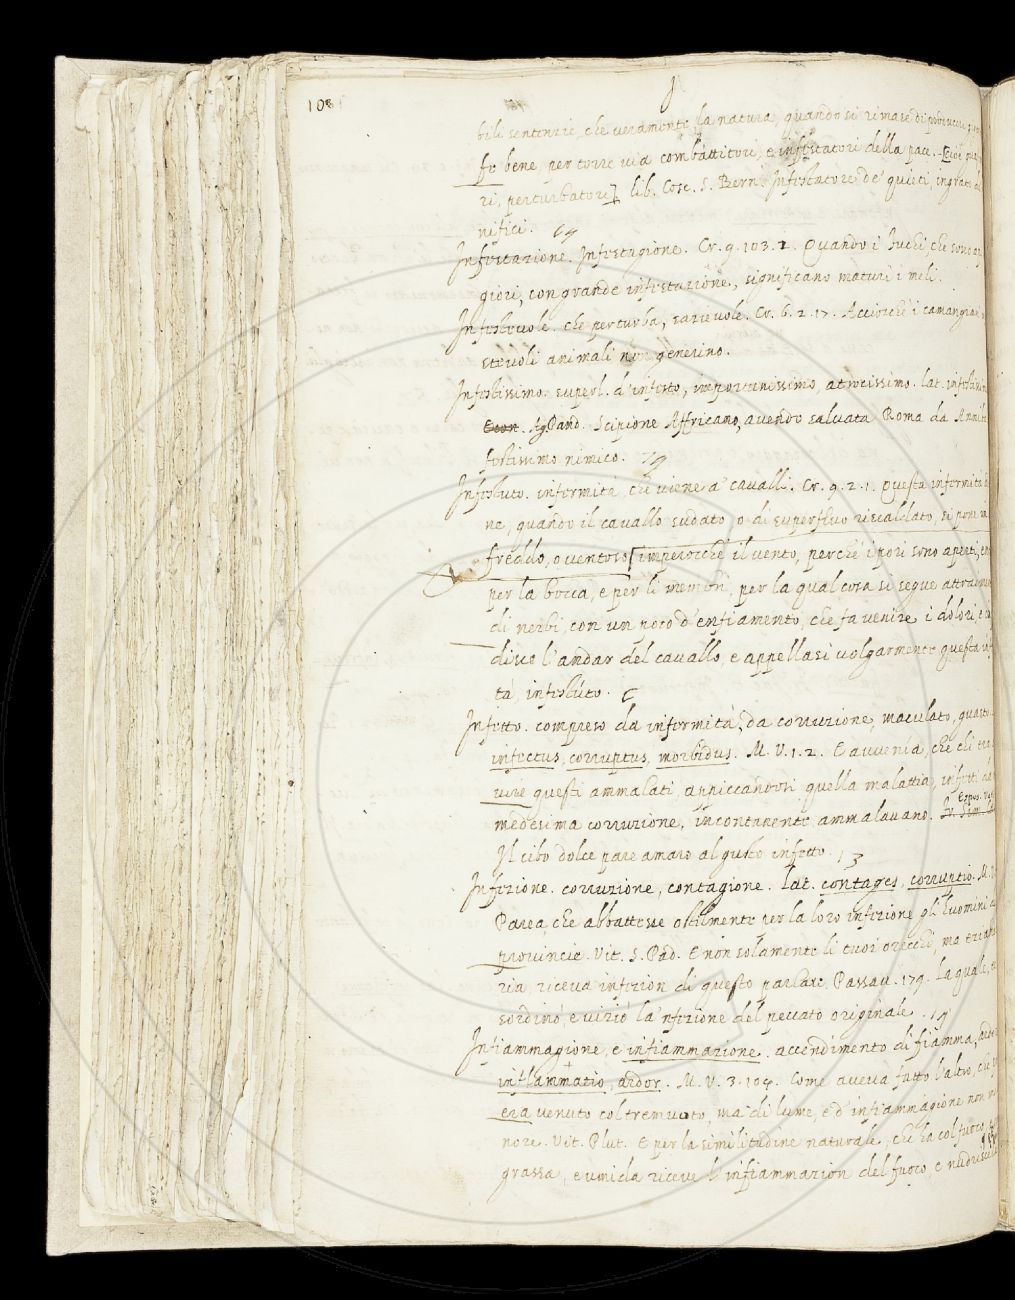 108
I
bili sentenzie, che veramente la natura, quando si rimase di
fe bene, per torre via combattitori, e infestatori della pace. [cioè
ri, perturbatori] lib. Cose. S. Bern. Infestatore de' quieti, ingrato
nifici. 69
Infestazione. Infestagione. Cr. 9. 103. 2. Quando i fuchi, che sono
giori, con grande infestazione, significano maturi i meli.
Infestevole. che perturba, nocevole. Cr. 6. 2. 17. Acciocchè i camangiar
stevoli animali non generino.
Infestissimo. superl. d'infesto, importunissimo, atrocissimo. lat.
Econ. Ag. Pand. Scipione Affricano, avendo salvata Roma da
festissimo nimico. 79
Infestuto. infermità, che viene a' cavalli. Cr. 9. 2. 1. Questa infermità
ne, quando il cavallo sudato, o di superfluo riscaldato, si pone
freddo, o ventoso [imperocchè il vento, perchè i pori sono aperti,
per la bocca, e per li membri, per la qual cosa si segue
di nerbi, con un poco d'enfiamento, che fa venire i dolori, e
disce l'andar del cavallo, e appellasi volgarmente questa
tà infestuto. C
Infetto. compreso da infermità, da corruzione, maculato, guasto.
infectus, corruptus, morbidus. M. V. 1. 2. E avvenía, che chi
vire questi ammalati, appiccandosi quella malattia, infetti
medesima corruzione, incontanente ammalavano.
Il cibo dolce pare amaro al gusto infetto. 13
Infezione. corruzione, contagione. Lat. contages, corruptio. M.
Parea che abbattesse ostilmente per la loro infezione gli huomini
provincie. Vit. S. Pad. E non solamente li tuoi orecchi, ma
ria riceva infezion di questo parlare. Passav. 179. La quale,
sordinò, e viziò la 'nfezione del peccato originale. 14
Infiammagione, e infiammazione. accendimento di fiamma,
inflammatio, ardor. M. V. 3. 104. Come aveva fatto l'altro, che
era venuto col tremuoto, ma di lume, e d'infiammagione non
nore. Vit. Plut. E per la similitudine naturale, che ha col fuoco
grassa, e umida riceve l'infiammazion del fuoco, e